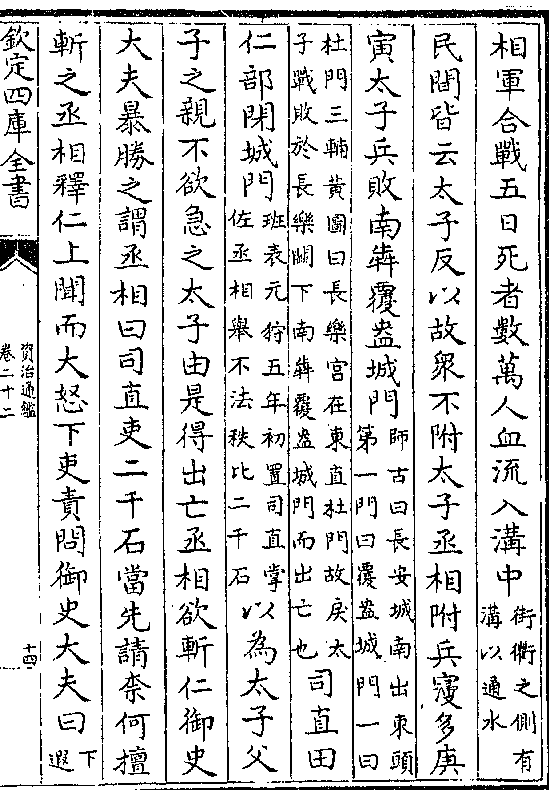 相軍合戰五日死者數萬人血流入溝中街衢之側有溝以通水
民間皆云太子反以故衆不附太子丞相附兵寖多庚
寅太子兵敗南犇覆盎城門師古曰長安城南出東頭第一門曰覆盎城門一曰
杜門三輔黄圖曰長樂宫在東直杜門故戾太子戰敗於長樂闕下南犇覆盎城門而出亡也司直田
仁部閉城門班表元狩五年初置司直掌佐丞相舉不法秩比二千石以為太子父
子之親不欲急之太子由是得出亡丞相欲斬仁御史
大夫暴勝之謂丞相曰司直吏二千石當先請柰何擅
斬之丞相釋仁上聞而大怒下吏責問御史大夫曰下遐
欽定四庫全書
資治通鑑
卷二十二
十四